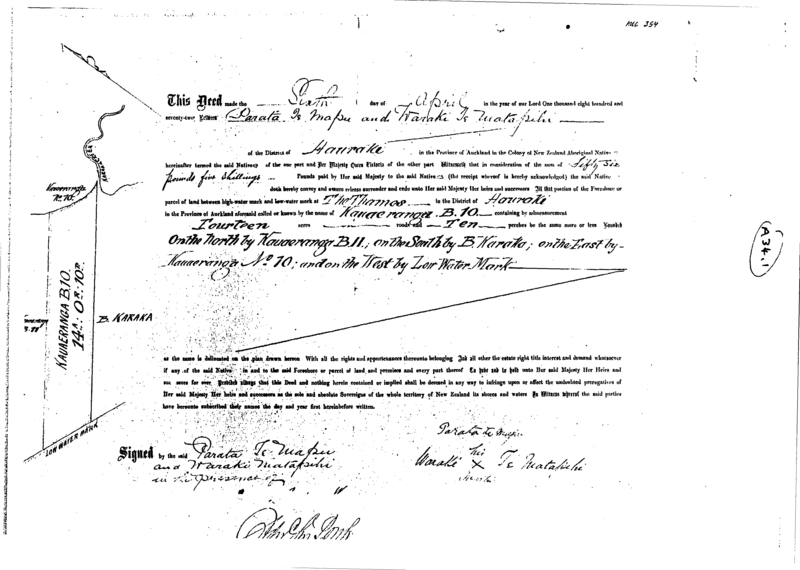 AUC 354
This Deed made the Sixth day of April in the year of our Lord One thousand eight hundred and
seventy-two Between Parata Te Mapu and Waraki Te Matapihi
of the District of Hauraki in the Province of Auckland in the Colony of New Zealand Aboriginal Natives
hereinafter termed the said Natives of the one part and Her Majesty Queen Victoria of the other part Witnesseth that in consideration of the sum of Fifty six
pounds five shillings Pounds paid by Her said Majesty to the said Natives (the receipt whereof is hereby acknowledged) the said Natives
doth hereby convey and assure release surrender and ends unto Her said Majesty Her heirs and successors All that portion of the Foreshore or
parcel of land between high-water mark and low-water mark at The Thames in the District of Hauraki
in the Province of Auckland aforesaid called or known by the name of Kauaeranga B.10 containing by admeasurement
Fourteen acres roods and Ten perches be the same more or less Bounded
On the North by Kauaeranga B.11; on the South by B. Karaka; on the East by
Kauaeranga No 10; and on the West by Low Water Mark
as the same is delineated on the plan drawn hereon With all the rights and appurtenances thereunto belonging And all other the estate right title interest and demand whatsoever
if any of the said Natives in and to the said Foreshore or parcel of land and premises and every part thereof To have and to hold unto Her said Majesty Her Heirs and
successors for ever Provided always that this Deed and nothing herein contained or implied shall be deemed in any way to infringe upon or affect the undoubted prerogatives of
Her said Majesty Her heirs and successors as the sole and absolute Sovereigns of the whole territory of New Zealand its shores and waters In Witness whereof the said parties
have hereunto subscribed their names the day and year first hereinbefore written.
Signed by the said Parata Te Mapu
and Waraki Matapihi
in the presence of
Parata te Mapu
Waraki his X Te Matapihi
mark
Kauaeranga
No 10.
KAUAERANGA B.10.
14A. 0R. 10P.
B. KARAKA
LOW WATER MARK
(A34.1)